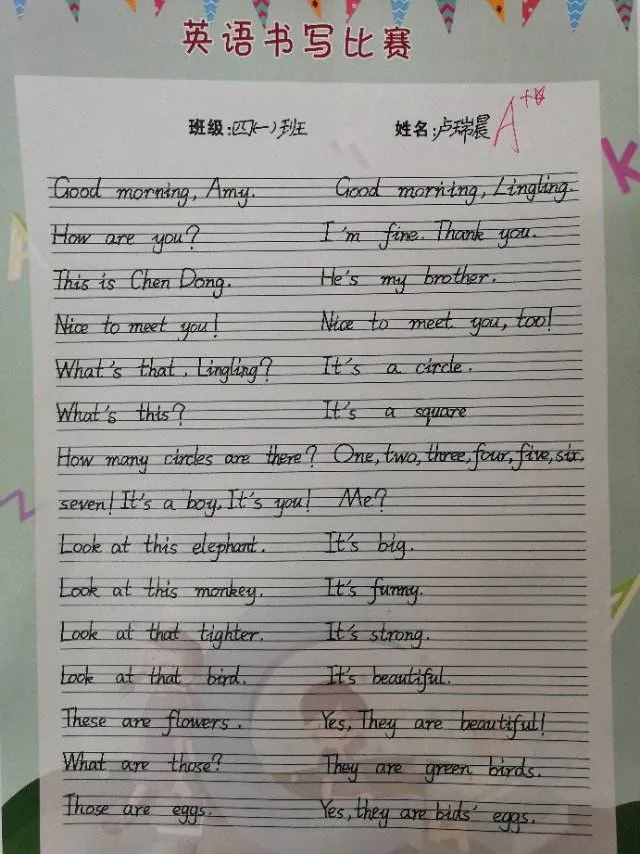 英语书写比赛
班级:四(一)班 姓名:卢瑞晨 A+☆
Good morning, Amy. Good morning, Lingling.
How are you? I'm fine. Thank you.
This is Chen Dong. He's my brother.
Nice to meet you! Nice to meet you, too!
What's that, Lingling? It's a circle.
What's this? It's a square
How many circles are there? One, two, three, four, five, six,
seven! It's a boy, It's you! Me?
Look at this elephant. It's big.
Look at this monkey. It's funny.
Look at that tighter. It's strong.
Look at that bird. It's beautiful.
These are flowers. Yes, They are beautiful!
What are those? They are green birds.
Those are eggs. Yes, they are bids' eggs.
K